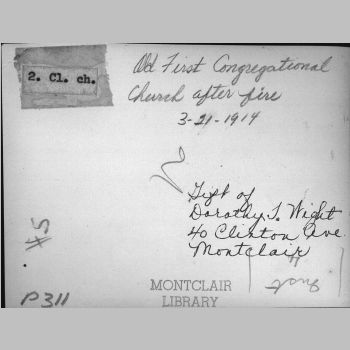 2. Cl. ch.
Old First Congregational
Church after fire
3-21-1914
Gift of
Dorothy T. Wight
40 Clinton Ave.
Montclair
#5
P311
MONTCLAIR
LIBRARY